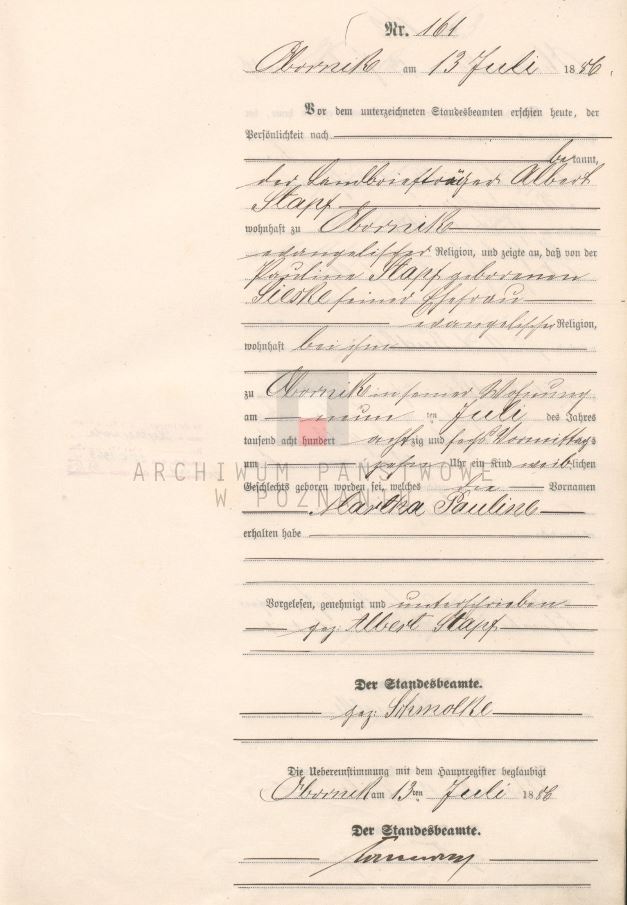 Nr. 161
Obornik am 13 Juli 1886.
Vor dem unterzeichneten Standesbeamten erschien heute, der
Persönlichkeit nach
bekannt,
der Landbriefträger Albert
Stapf
wohnhaft zu Obornik
evangelischer Religion, und zeigte an, daß von der
Pauline Stapf geborenen
Gieske seiner Ehefrau
evangelischer Religion,
wohnhaft bei ihm
zu Obornik in seiner Wohnung
am neun ten Juli des Jahres
tausend acht hundert achtzig und sechs Vormittags
um zehn Uhr ein Kind weiblichen
Geschlechts geboren worden sei, welches die Vornamen
Martha Pauline
erhalten habe
ARCHIWUM PAŃSTWOWE
W POZNANIU
Vorgelesen, genehmigt und unterschrieben
gez: Albert Stapf
Der Standesbeamte.
gez: Schmolke
Die Uebereinstimmung mit dem Hauptregister beglaubigt
Obornik am 13ten Juli 1886
Der Standesbeamte.